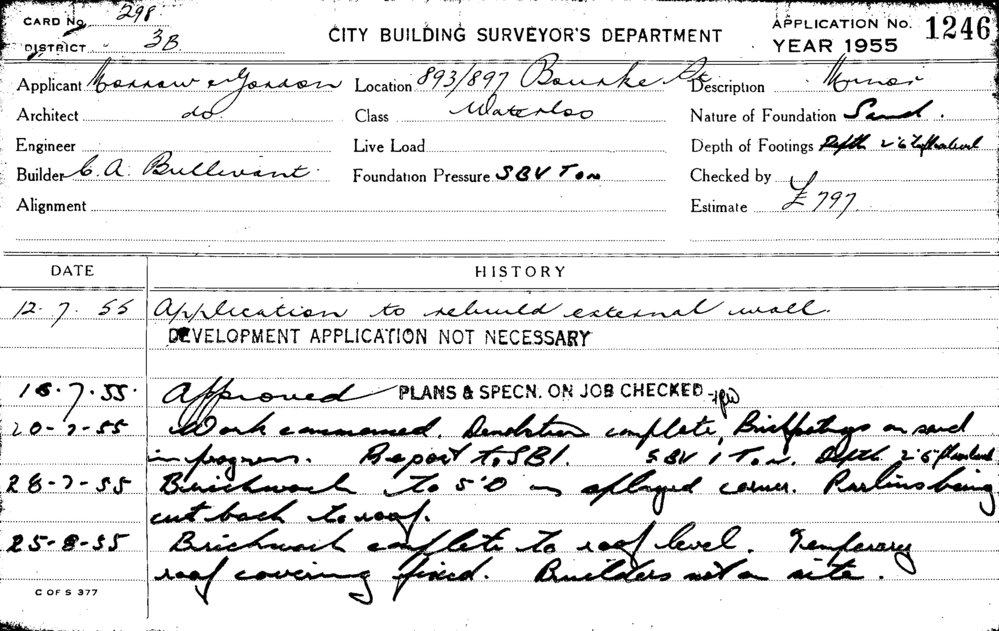 CARD No. 298
DISTRICT 3B
CITY BUILDING SURVEYOR'S DEPARTMENT
APPLICATION No. 1246
YEAR 1955
Applicant Morrow & Gordon Location 893/897 Bourke St Description Minor
Architect do. Class Waterloo Nature of Foundation Sand.
Engineer Live Load Depth of Footings Depth 2'6"
Builder C. A. Bullivant. Foundation Pressure SBV Ton Checked by
Alignment Estimate £797.
DATE HISTORY
12.7.55 Application to rebuild external wall.
DEVELOPMENT APPLICATION NOT NECESSARY
18.7.55. Approved PLANS & SPECN. ON JOB CHECKED
20-7-55 Work commenced. Demolition complete, Brick footings on sand
in progress. Report to SBI. SBV 1 Ton. Depth 2'6"
28-7-55 Brickwork to 5'0 on splayed corner. Purlins being
cut back to roof.
25-8-55 Brickwork complete to roof level. Temporary
roof covering fixed. Builders not on site.
C OF S 377